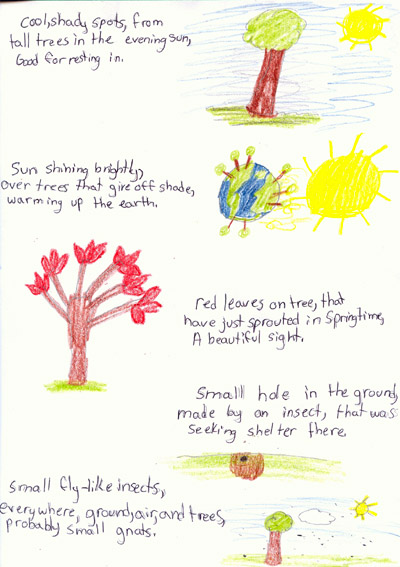 cool, shady spots, from
tall trees in the evening sun,
Good for resting in.
Sun shining brightly,
over trees that give off shade,
warming up the earth.
red leaves on tree, that
have just sprouted in Springtime,
A beautiful sight.
Small hole in the ground,
made by an insect, that was
seeking shelter there.
Small fly-like insects,
everywhere, ground, air, and trees,
probably small gnats.